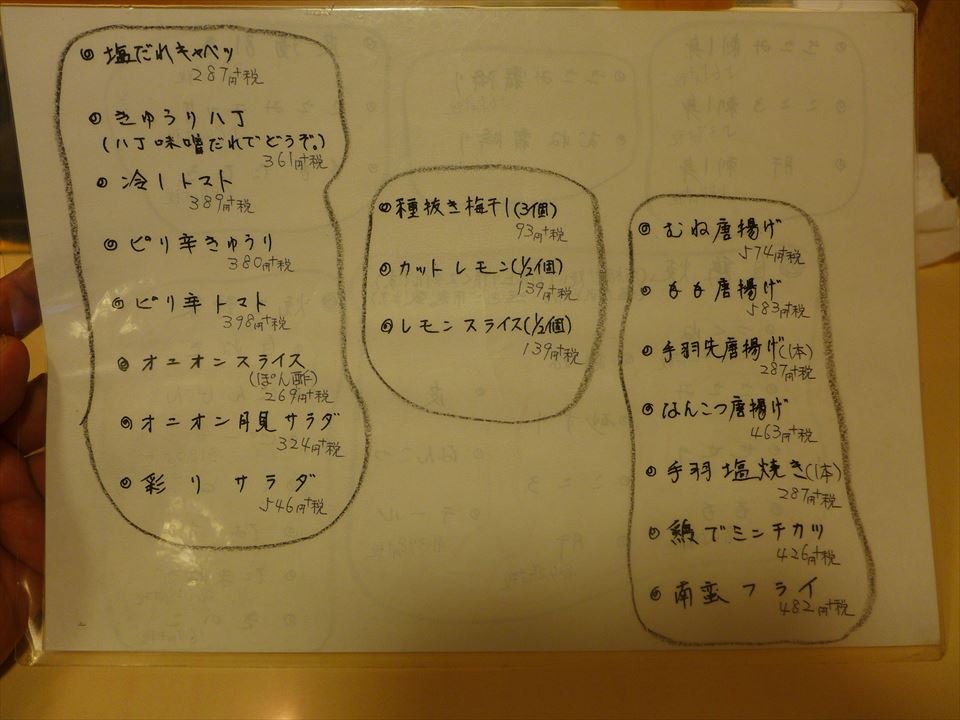 塩だれキャベツ
287円+税
きゅうり八丁
(八丁味噌だれでどうぞ。)
361円+税
冷しトマト
389円+税
ピリ辛きゅうり
380円+税
ピリ辛トマト
398円+税
オニオンスライス
(ぽん酢)
269円+税
オニオン月見サラダ
324円+税
彩りサラダ
546円+税
種抜き梅干し(3個)
93円+税
カットレモン(1/2個)
139円+税
レモンスライス(1/2個)
139円+税
むね唐揚げ
574円+税
もも唐揚げ
583円+税
手羽先唐揚げ(1本)
287円+税
なんこつ唐揚げ
463円+税
手羽塩焼き(1本)
287円+税
でミンチカツ
426円+税
南蛮フライ
482円+税